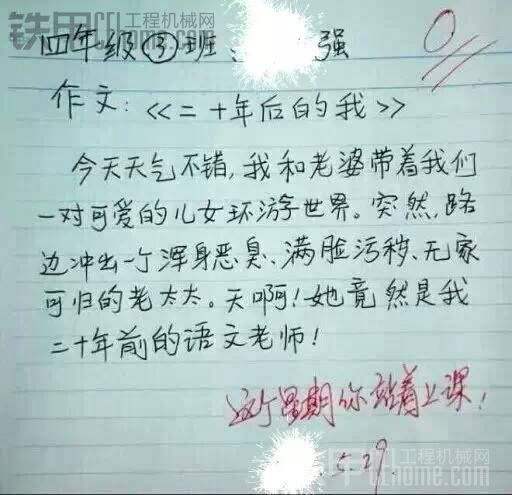 铁甲工程机械网
四年级③班: 强
0
作文:《二十年后的我》
今天天气不错,我和老婆带着我们
一对可爱的儿女环游世界。突然,路
边冲出一个浑身恶臭、满脸污秽、无家
可归的老太太。天啊!她竟然是我
二十年前的语文老师!
这个星期你站着上课!
5.29.
工程机械网
cehome.com